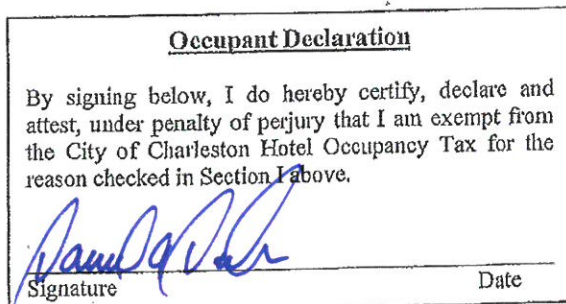 Occupant Declaration
By signing below, I do hereby certify, declare and
attest, under penalty of perjury that I am exempt from
the City of Charleston Hotel Occupancy Tax for the
reason checked in Section I above.
Signature
Date